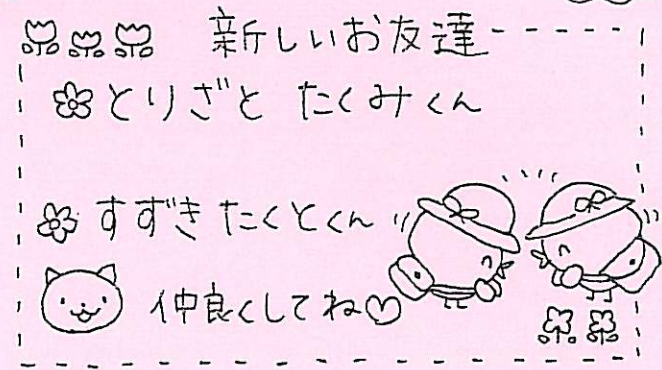 新しいお友達
とりざと たくみくん
すずき たくとくん
仲良くしてね♡